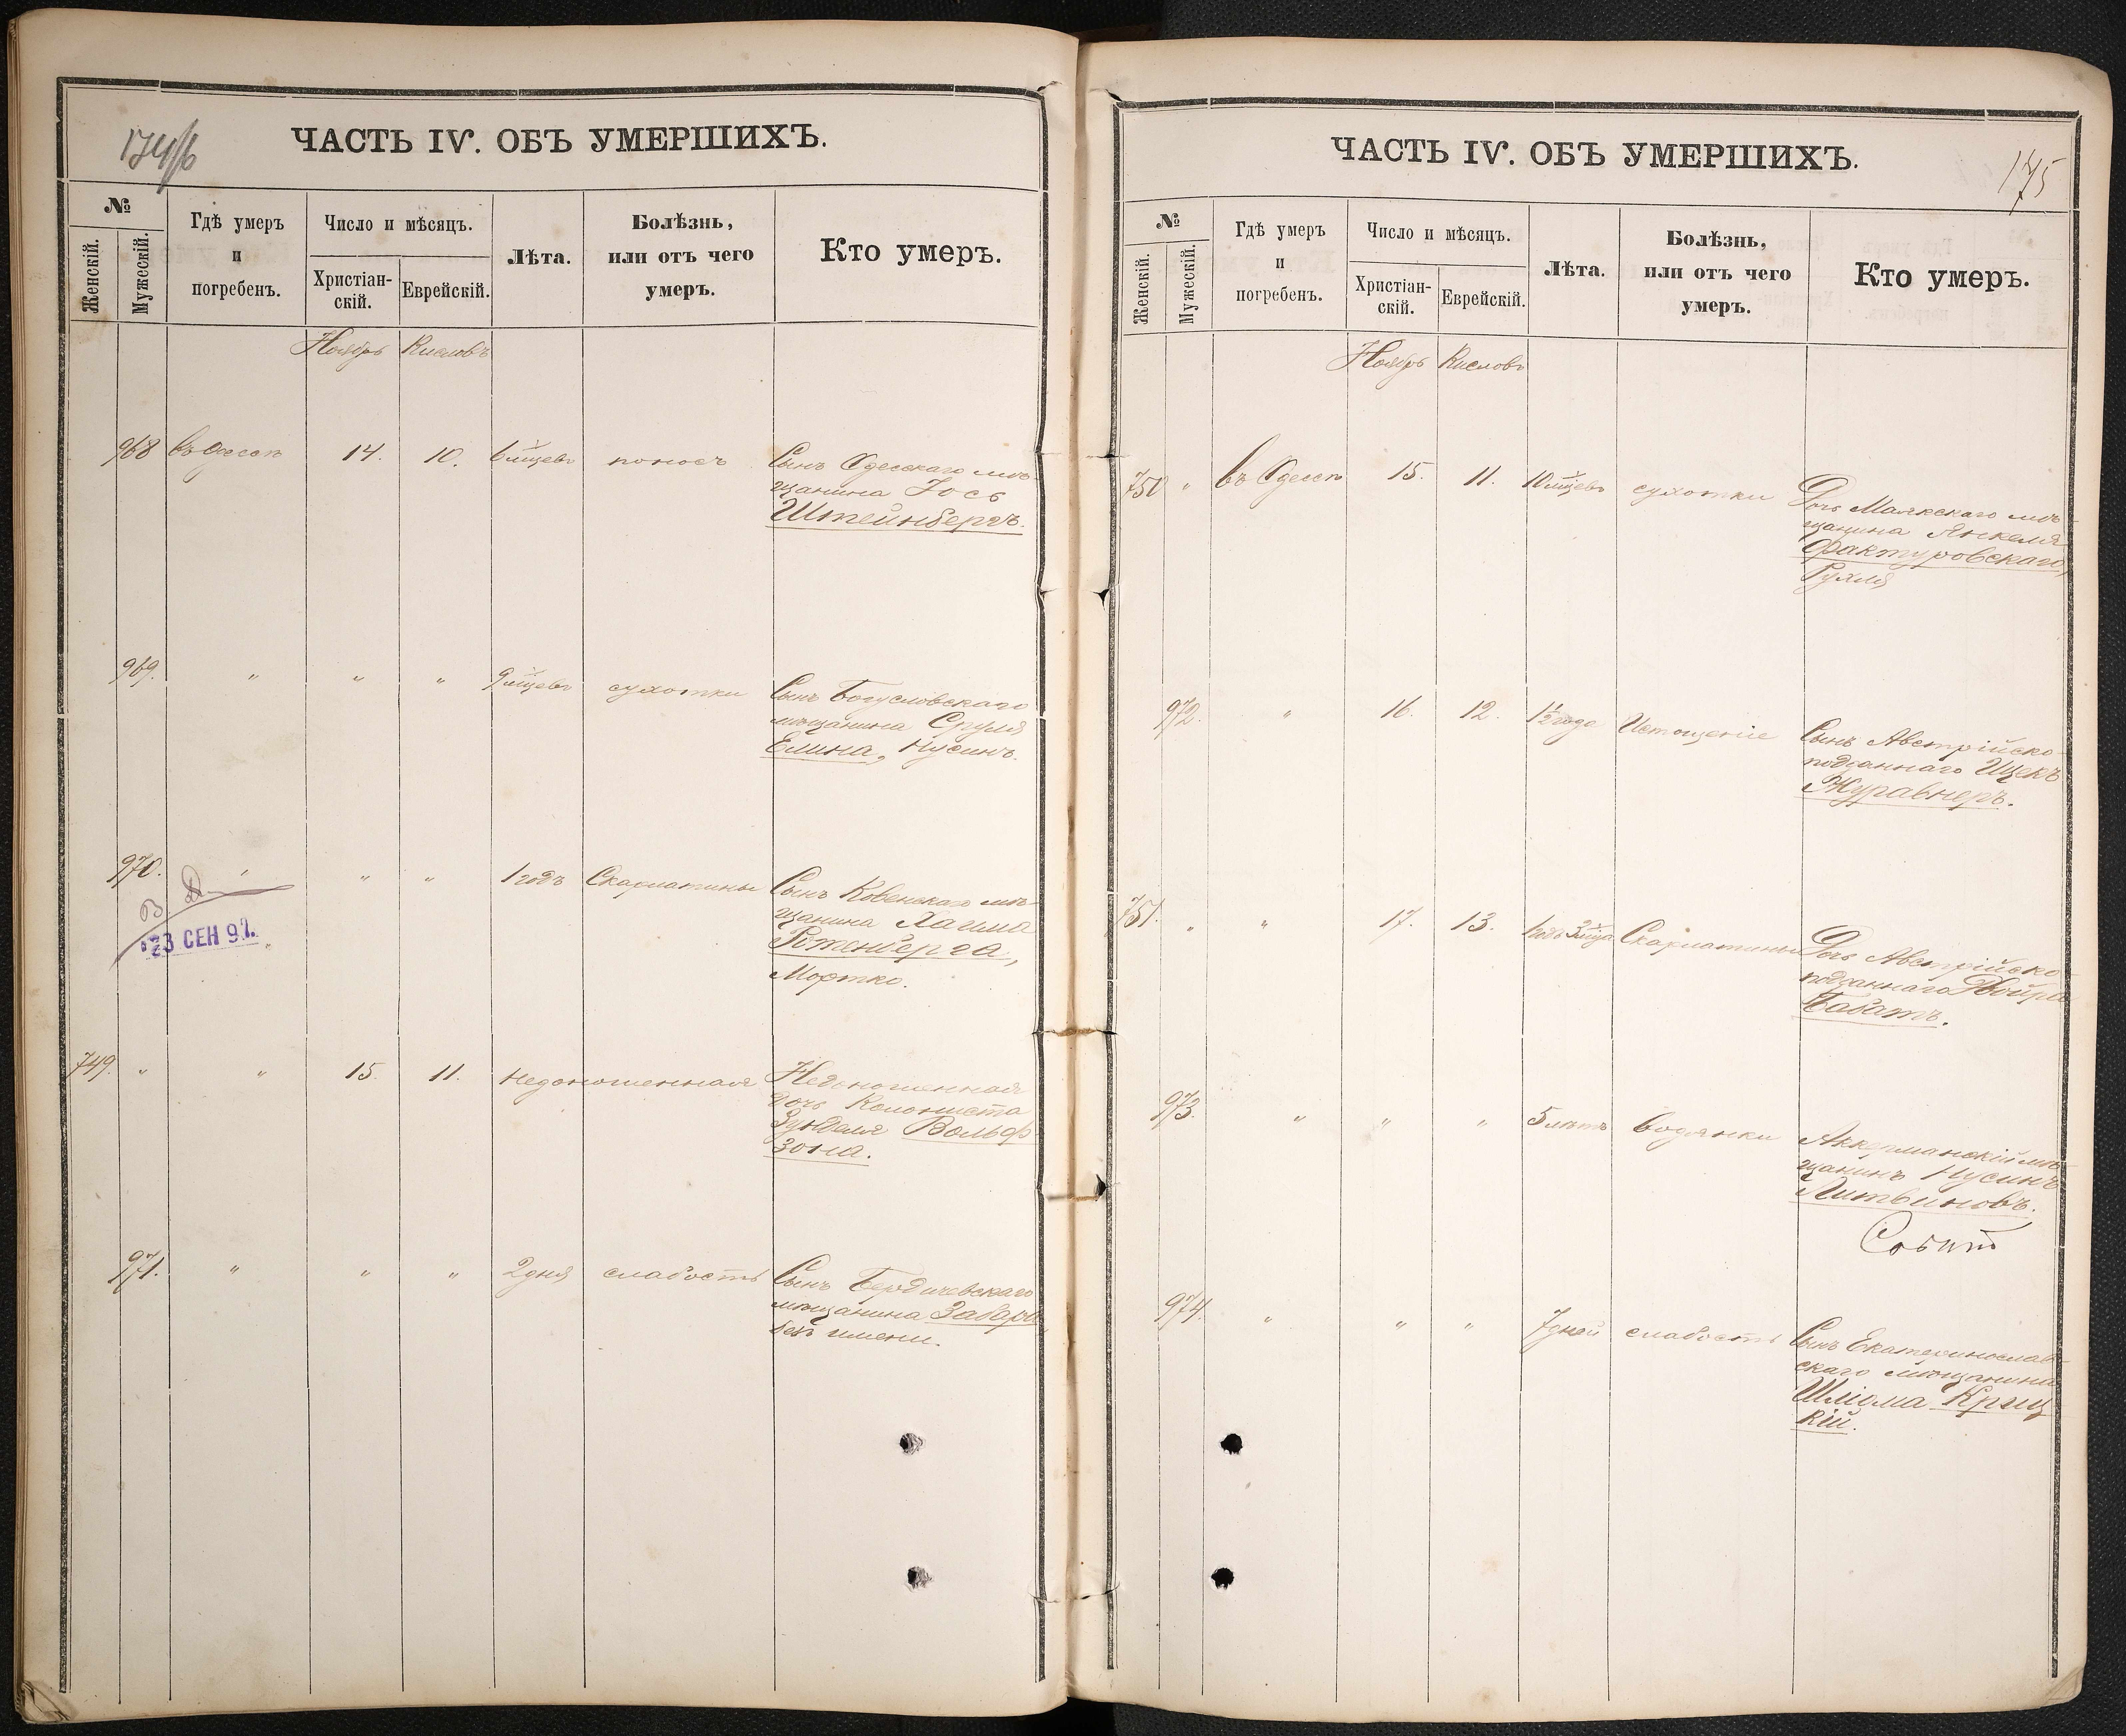 174/б
ЧАСТЬ IV. ОБЪ УМЕРШИХЪ.
№
Женскій.
Мужескій.
Гдѣ умеръ
и
погребенъ.
Число и мѣсяцъ.
Христіан-
скій.
Еврейскій.
Лѣта.
Болѣзнь,
или отъ чего
умеръ.
Кто умеръ.
Ноябрь Кислевъ
968 въ Одессѣ 14. 10. 6 мцевъ поносъ Сынъ Одесскаго мѣ-
щанина Іось
Штейнбергъ.
969. " " " 9 мцевъ сухотки Сынъ Богуславскаго
мѣщанина Сруля
Елина, Нусинъ.
970. " " " 1 годъ Скарлатины Сынъ Ковенскаго мѣ-
щанина Хаима
Ротенберга,
Мортко.
23 СЕН 97.
749. " " 15. 11. недоношенная Недоношенная
дочь Колониста
Зунделя Вольф
зона.
971. " " " 2 дня слабость Сынъ Бердичевскаго
мѣщанина Забара
безъ имени.
175
ЧАСТЬ IV. ОБЪ УМЕРШИХЪ.
№
Женскій.
Мужескій.
Гдѣ умеръ
и
погребенъ.
Число и мѣсяцъ.
Христіан-
скій.
Еврейскій.
Лѣта.
Болѣзнь,
или отъ чего
умеръ.
Кто умеръ.
Ноябрь Кислевъ
750 " въ Одессѣ 15. 11. 10 мцевъ сухотки Дочь Маякскаго мѣ-
щанина Янкеля
Фактуровскаго,
Рухля
972. " 16. 12. 1½ года Истощеніе Сынъ Австрійско-
подданнаго Ицекъ
Журавнеръ.
751. " " 17. 13. 1 годъ 3 мца Скарлатины Дочь Австрійско-
подданнаго Двойра
Бабатъ.
973. " " " 5 лѣтъ водянки Аккерманскій мѣ-
щанинъ Нусинъ
Литвиновъ.
974. " " " 7 дней слабость Сынъ Екатеринослав-
скаго мѣщанина
Шлiома Криц
кій.